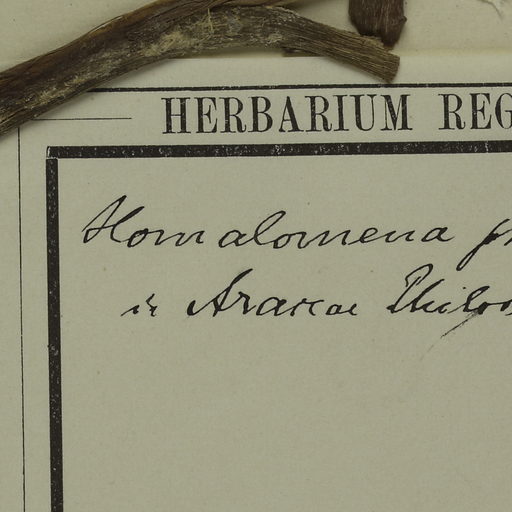 HERBARIUM REG
Homalomena
in Araceae Philod